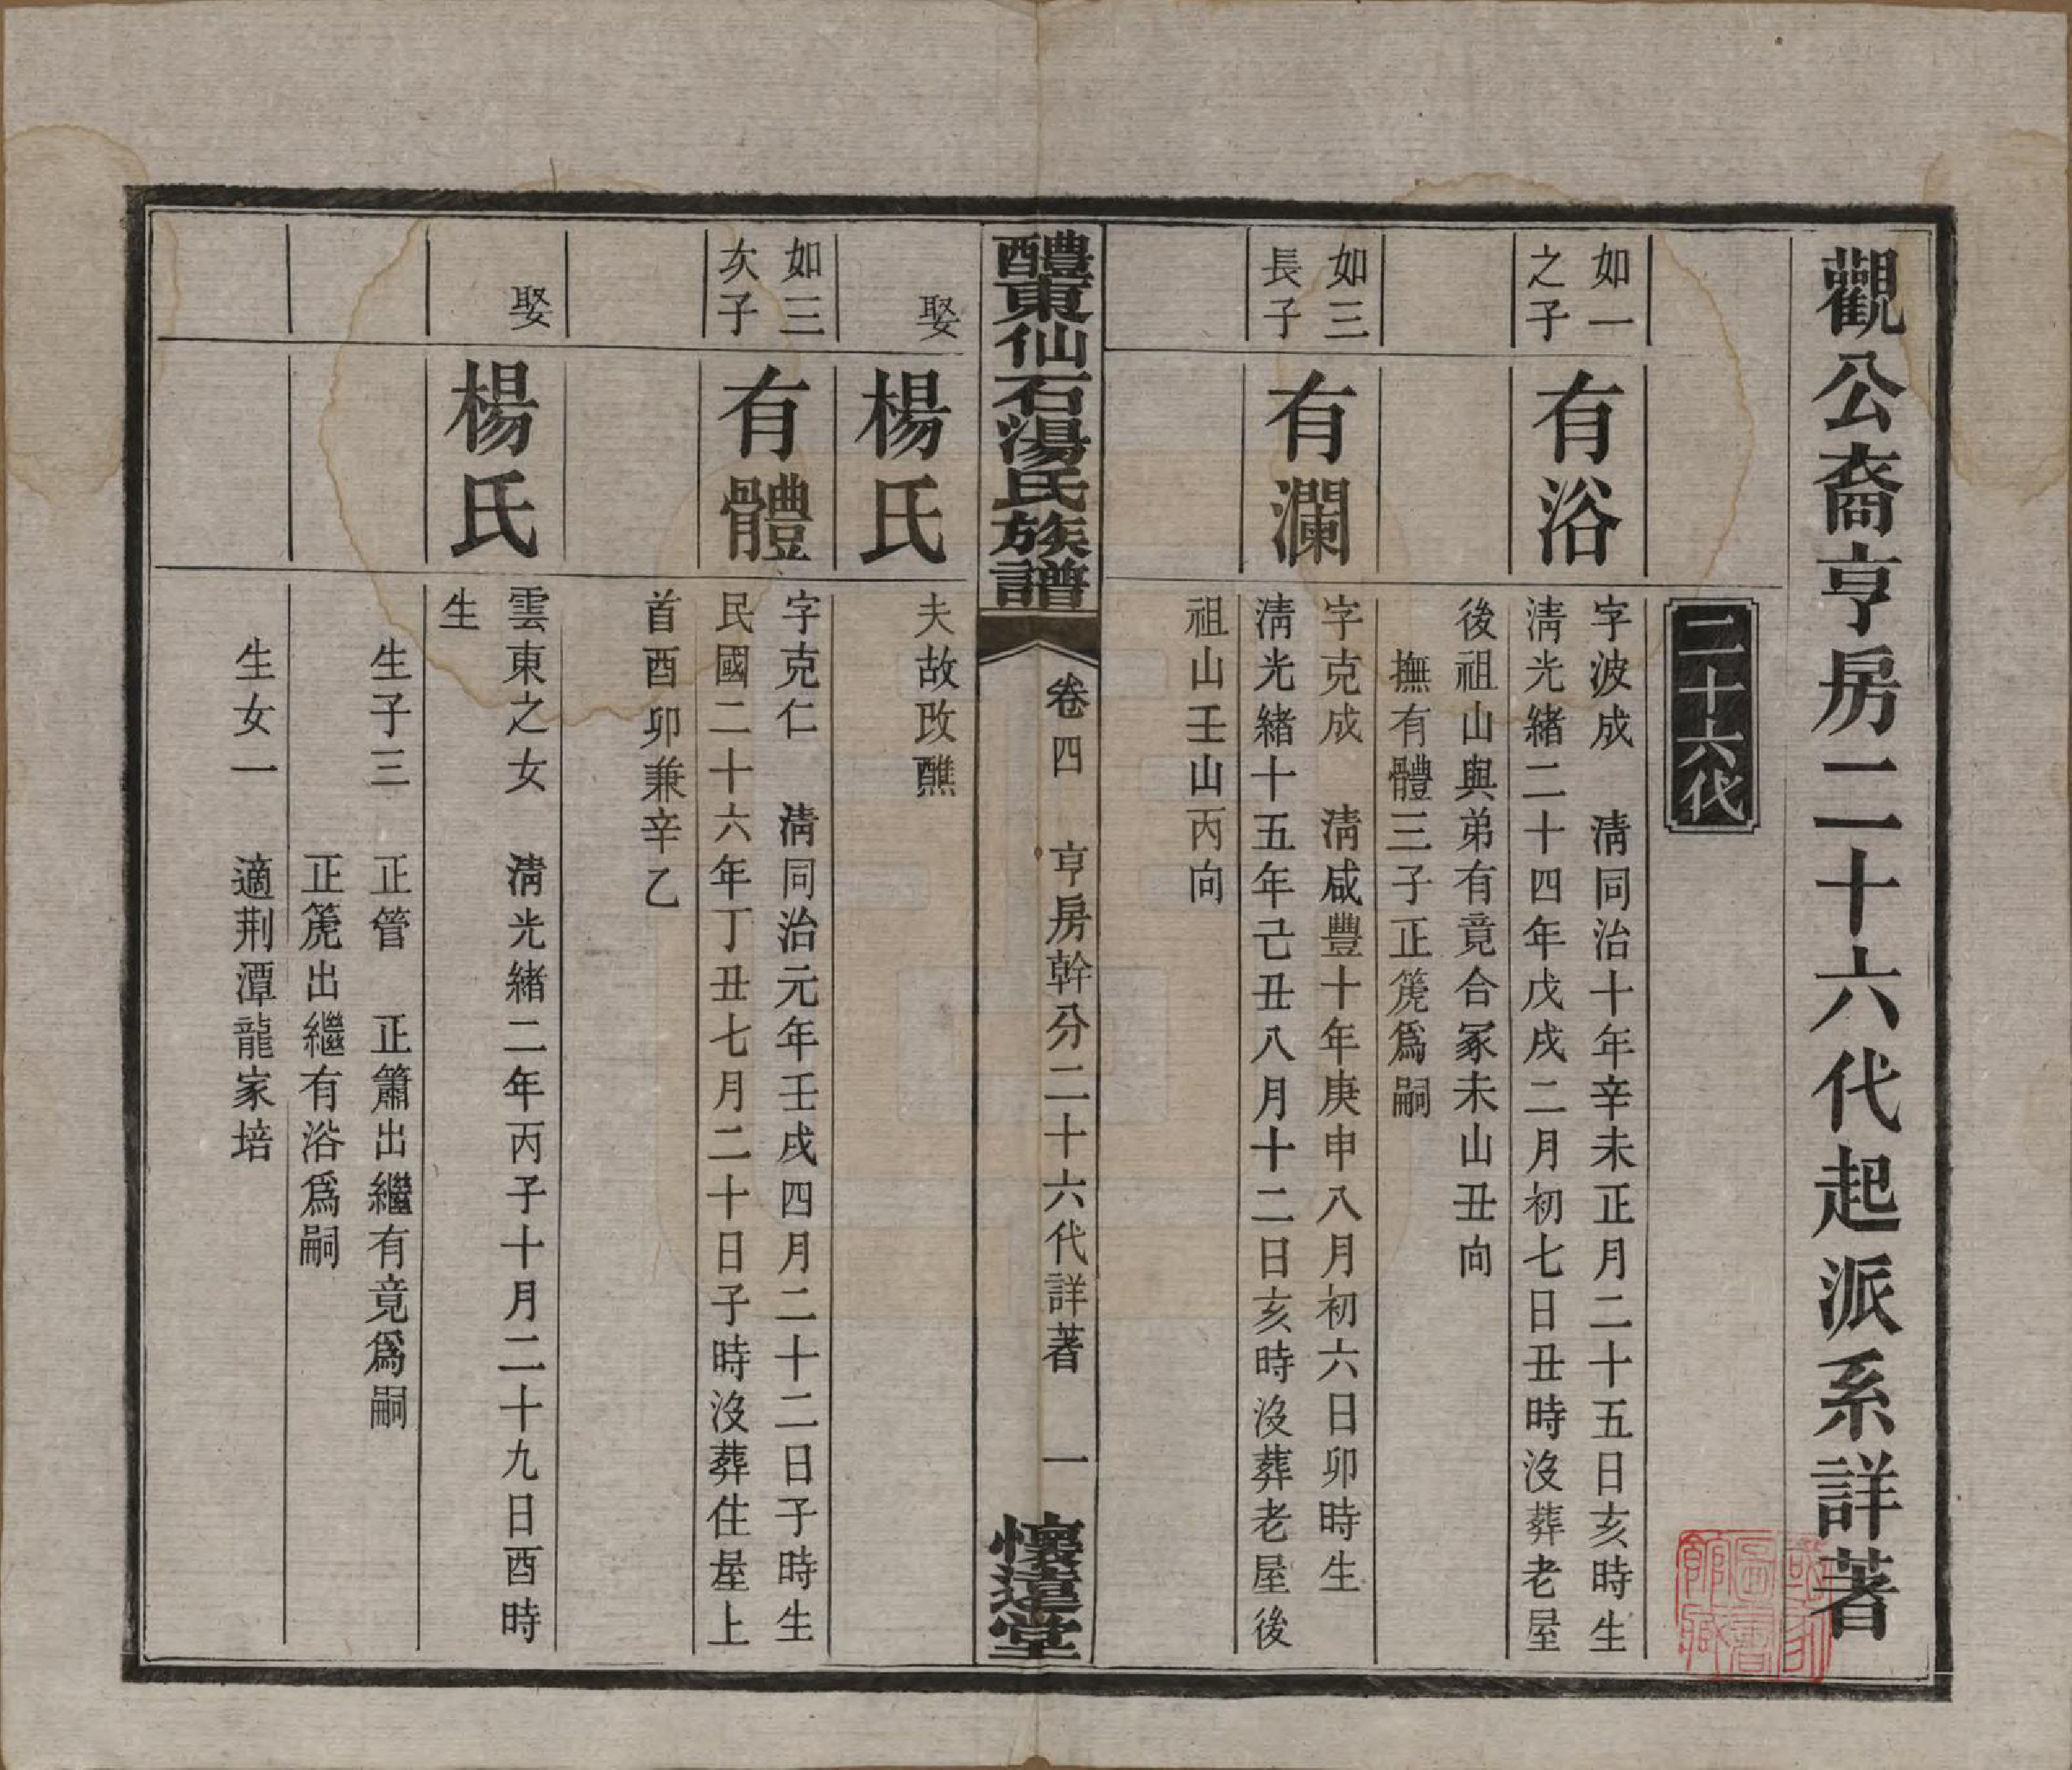 觀公裔亨房二十六代起派系詳著
二十六代
如一
之子
有浴
字波成　清同治十年辛未正月二十五日亥時生
清光緒二十四年戊戌二月初七日丑時沒葬老屋
後祖山與弟有竟合冢未山丑向
撫有體三子正篪爲嗣
如三
長子
有瀾
字克成　清咸豐十年庚申八月初六日卯時生
清光緒十五年己丑八月十二日亥時沒葬老屋後
祖山壬山丙向
醴東仙石湯氏族譜
卷四　亨房幹分二十六代詳著　一
懷遠堂
娶
楊氏
夫故改醮
如三
次子
有體
字克仁　清同治元年壬戌四月二十二日子時生
民國二十六年丁丑七月二十日子時沒葬住屋上
首酉卯兼辛乙
娶
楊氏
雲東之女　清光緒二年丙子十月二十九日酉時
生
生子三　正管　正簫出繼有竟爲嗣
正篪出繼有浴爲嗣
生女一　適荆潭龍家培